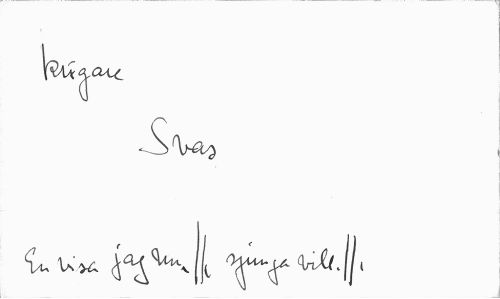 krigare
Svas
En visa jag nu. //, sjunga vill. //,